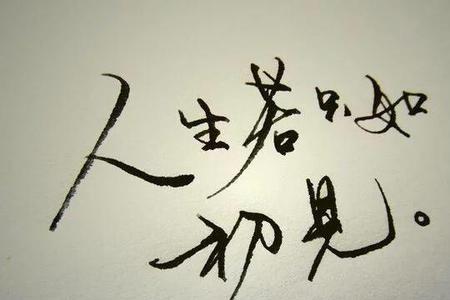 人生若只如
初见。